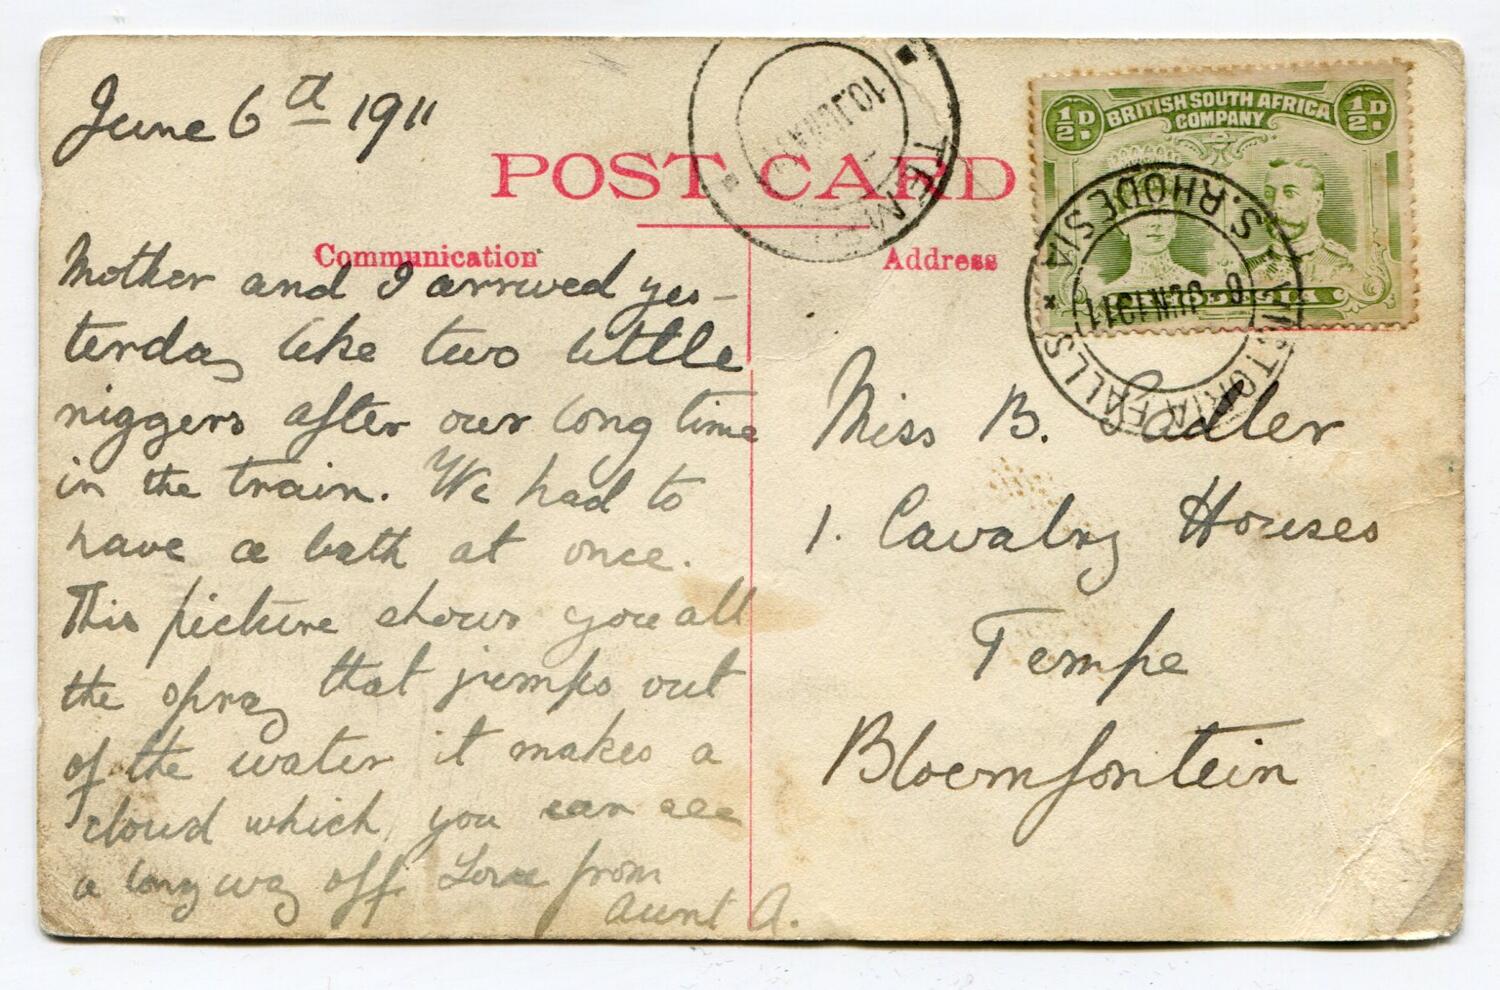 June 6th 1911
POST CARD
Communication
Address
Mother and I arrived yes-
terday like two little
niggers after our long time
in the train. We had to
have a bath at once.
This picture shows you all
the spray that jumps out
of the water it makes a
cloud which you can see
a long way off. Love from
Aunt A.
Miss B. Sadler
1. Cavalry Houses
Tempe
Bloemfontein
½D.
BRITISH SOUTH AFRICA
COMPANY
½D.
RHODESIA
VICTORIA FALLS
S. RHODESIA
6 JUN 1911
TEMPE
10 JUN